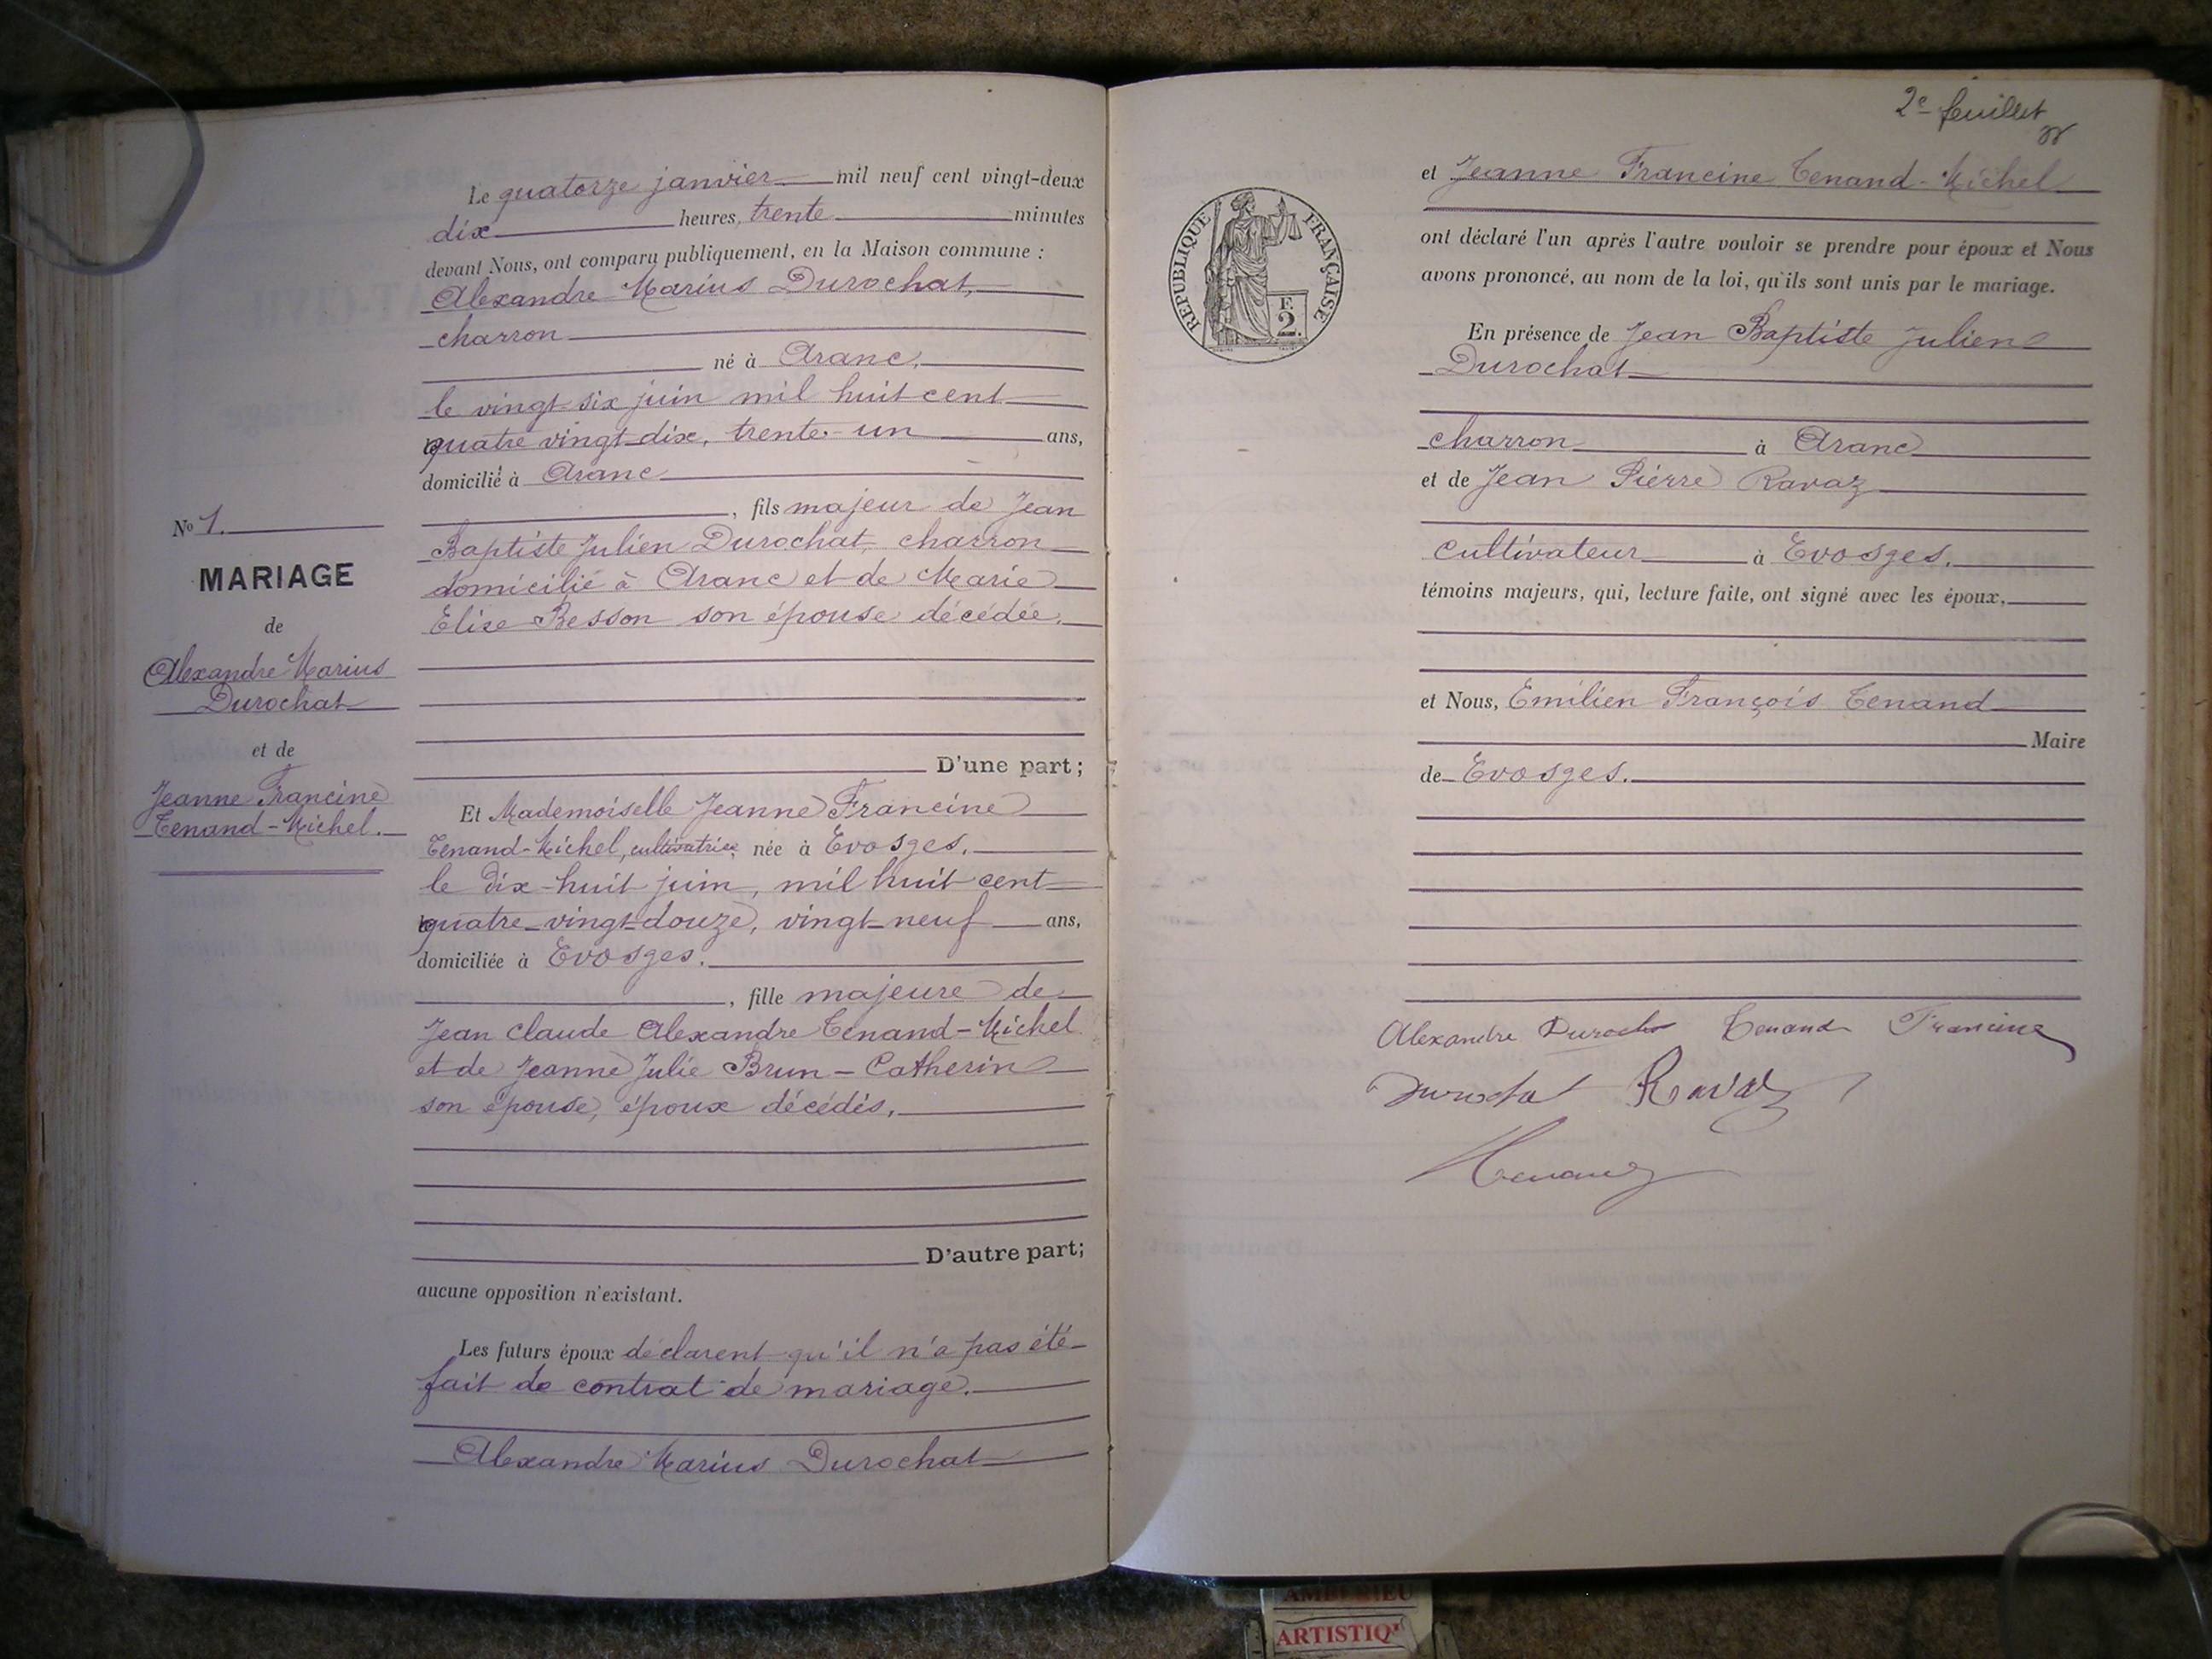 No 1.
MARIAGE
de
Alexandre Marius
Durochat
et de
Jeanne Francine
Tenand-Michel.
Le quatorze janvier mil neuf cent vingt-deux
dix heures, trente minutes
devant Nous, ont comparu publiquement, en la Maison commune :
Alexandre Marius Durochat,
charron
né à Aranc,
le vingt six juin mil huit cent
quatre vingt dix, trente-un ans,
domicilié à Aranc
, fils majeur de Jean
Baptiste Julien Durochat, charron
domicilié à Aranc et de Marie
Elise Besson son épouse décédée.
D'une part;
Et Mademoiselle Jeanne Francine
Tenand-Michel, cultivatrice, née à Evosges.
le dix-huit juin, mil huit cent
quatre-vingt-douze, vingt-neuf ans,
domiciliée à Evosges.
, fille majeure de
Jean Claude Alexandre Tenand-Michel
et de Jeanne Julie Brun-Catherin
son épouse, époux décédés.
D'autre part;
aucune opposition n'existant.
Les futurs époux déclarent qu'il n'a pas été
fait de contrat de mariage.
Alexandre Marius Durochat
2e feuillet
REPUBLIQUE FRANÇAISE
F.
2.
et Jeanne Francine Tenand-Michel
ont déclaré l'un après l'autre vouloir se prendre pour époux et Nous
avons prononcé, au nom de la loi, qu'ils sont unis par le mariage.
En présence de Jean Baptiste Julien
Durochat
charron à Aranc
et de Jean Pierre Ravaz
cultivateur à Evosges.
témoins majeurs, qui, lecture faite, ont signé avec les époux,
et Nous, Emilien François Tenand
Maire
de Evosges.
Alexandre Durochat Tenand Francine
Durochat Ravaz
Tenand
AMBERIEU
ARTISTIQ